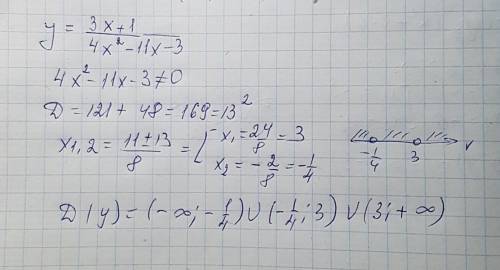 y = (3x+1)/(4x²-11x-3)
4x²-11x-3≠0
D = 121 + 48 = 169 = 13²
x1,2 = (11±13)/8 = [ x₁ = 24/8 = 3
x₂ = -2/8 = -1/4
-1/4 3 x
D(y) = (-∞; -1/4) ∪ (-1/4; 3) ∪ (3; +∞)